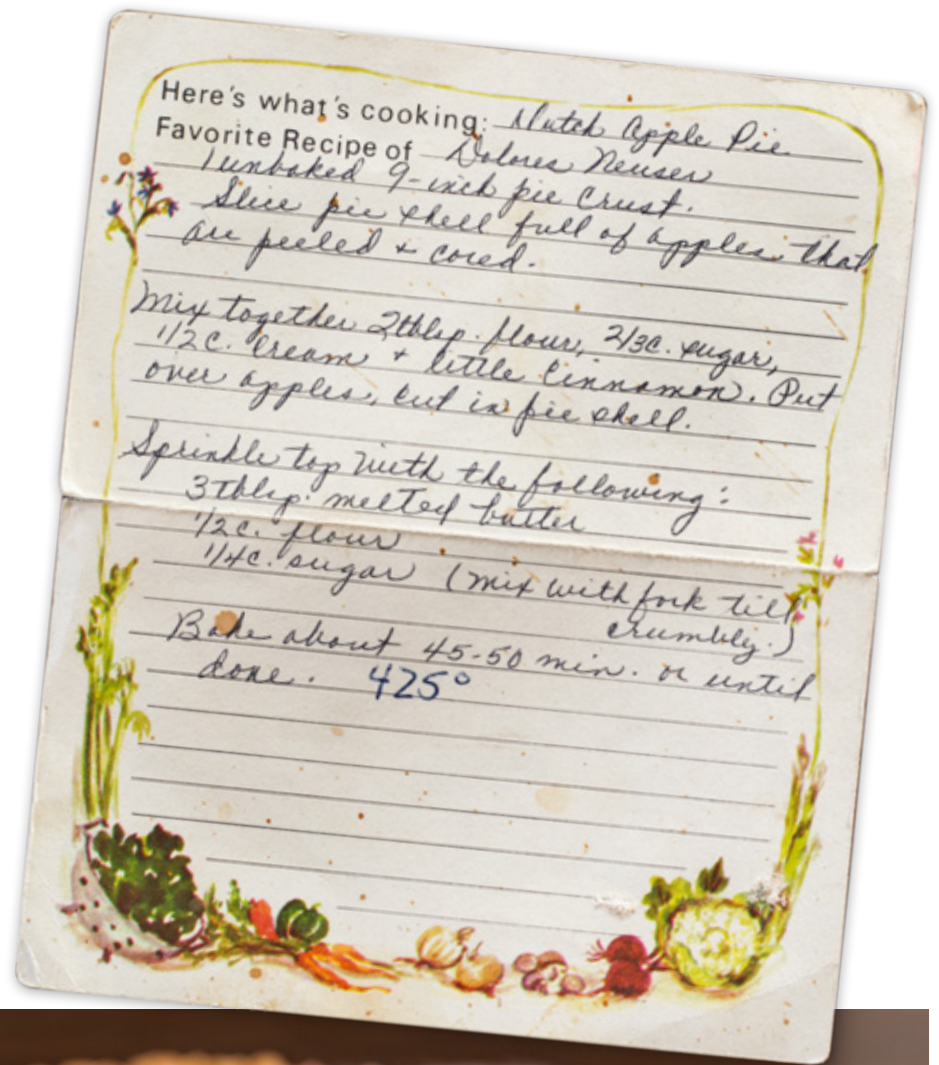 Here's what's cooking: Dutch Apple Pie
Favorite Recipe of Dolores Neuser
1 unbaked 9-inch pie crust.
Slice pie shell full of apples that
are peeled + cored.
Mix together 2 tblsp. flour, 2/3 c. sugar,
1/2 c. cream + little cinnamon. Put
over apples, cut in pie shell.
Sprinkle top with the following:
3 tblsp. melted butter
1/2 c. flour
1/4 c. sugar (mix with fork till
crumbly.)
Bake about 45-50 min. or until
done. 425°